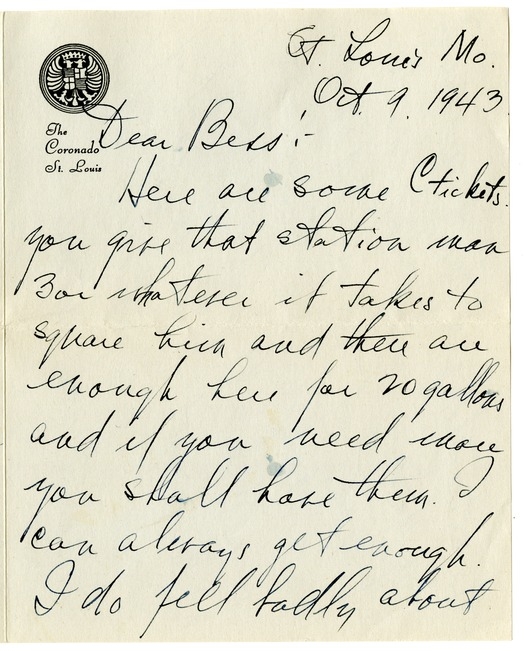 St. Louis Mo.
Oct. 9, 1943.
The
Coronado
St. Louis
Dear Bess:-
Here are some C tickets.
you give that station man
3 or whatever it takes to
square him and there are
enough here for 20 gallons
and if you need more
you shall have them. I
can always get enough.
I do fell badly about